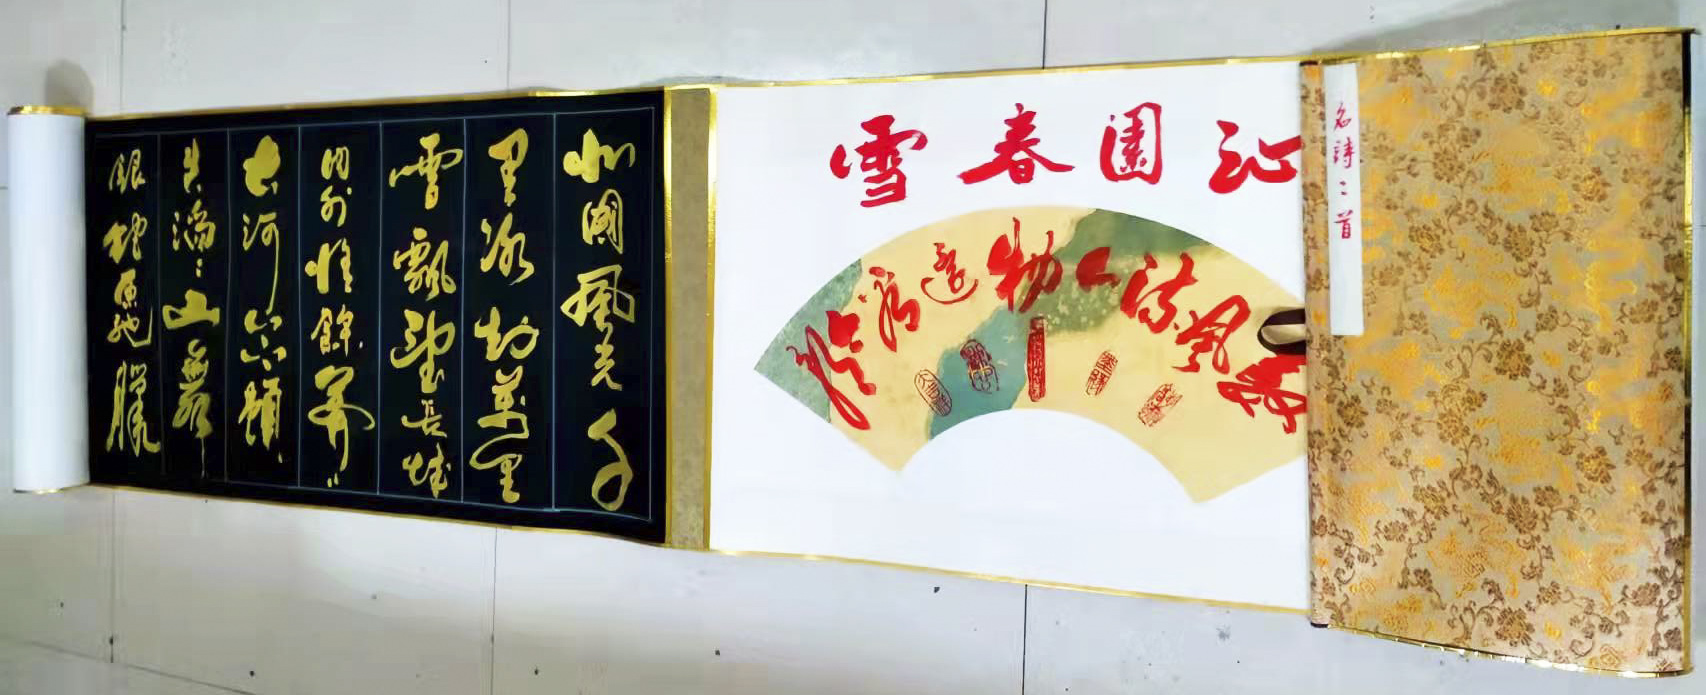 名詩二首
沁園春雪
数風流人物還看今朝
北國風光千
里冰封萬里
雪飄望長城
内外惟餘莽〻
大河上下頓
失滔〻山舞
銀蛇原馳臘